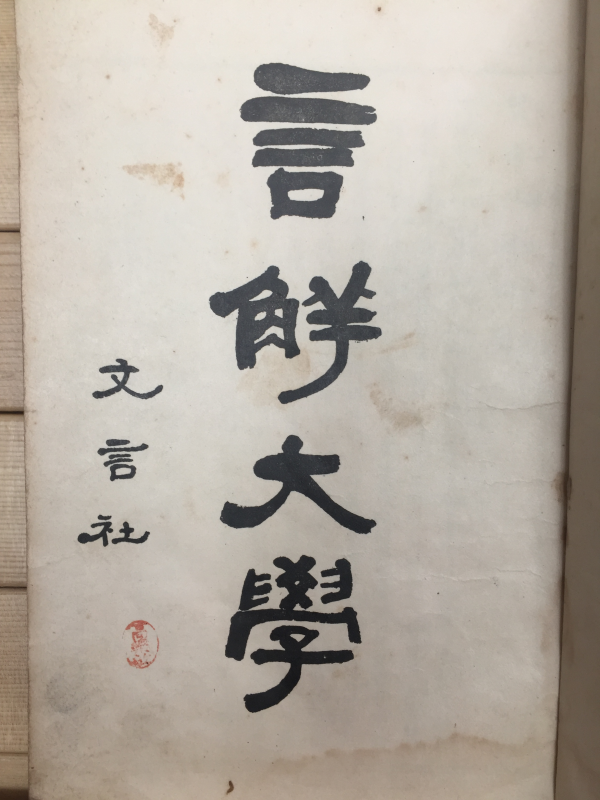 言觧大學
文言社